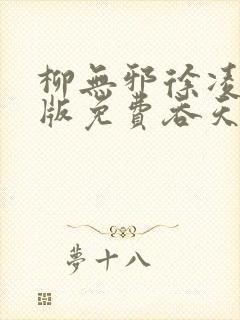 柳無邪徐凌
版免費吞天
夢十八